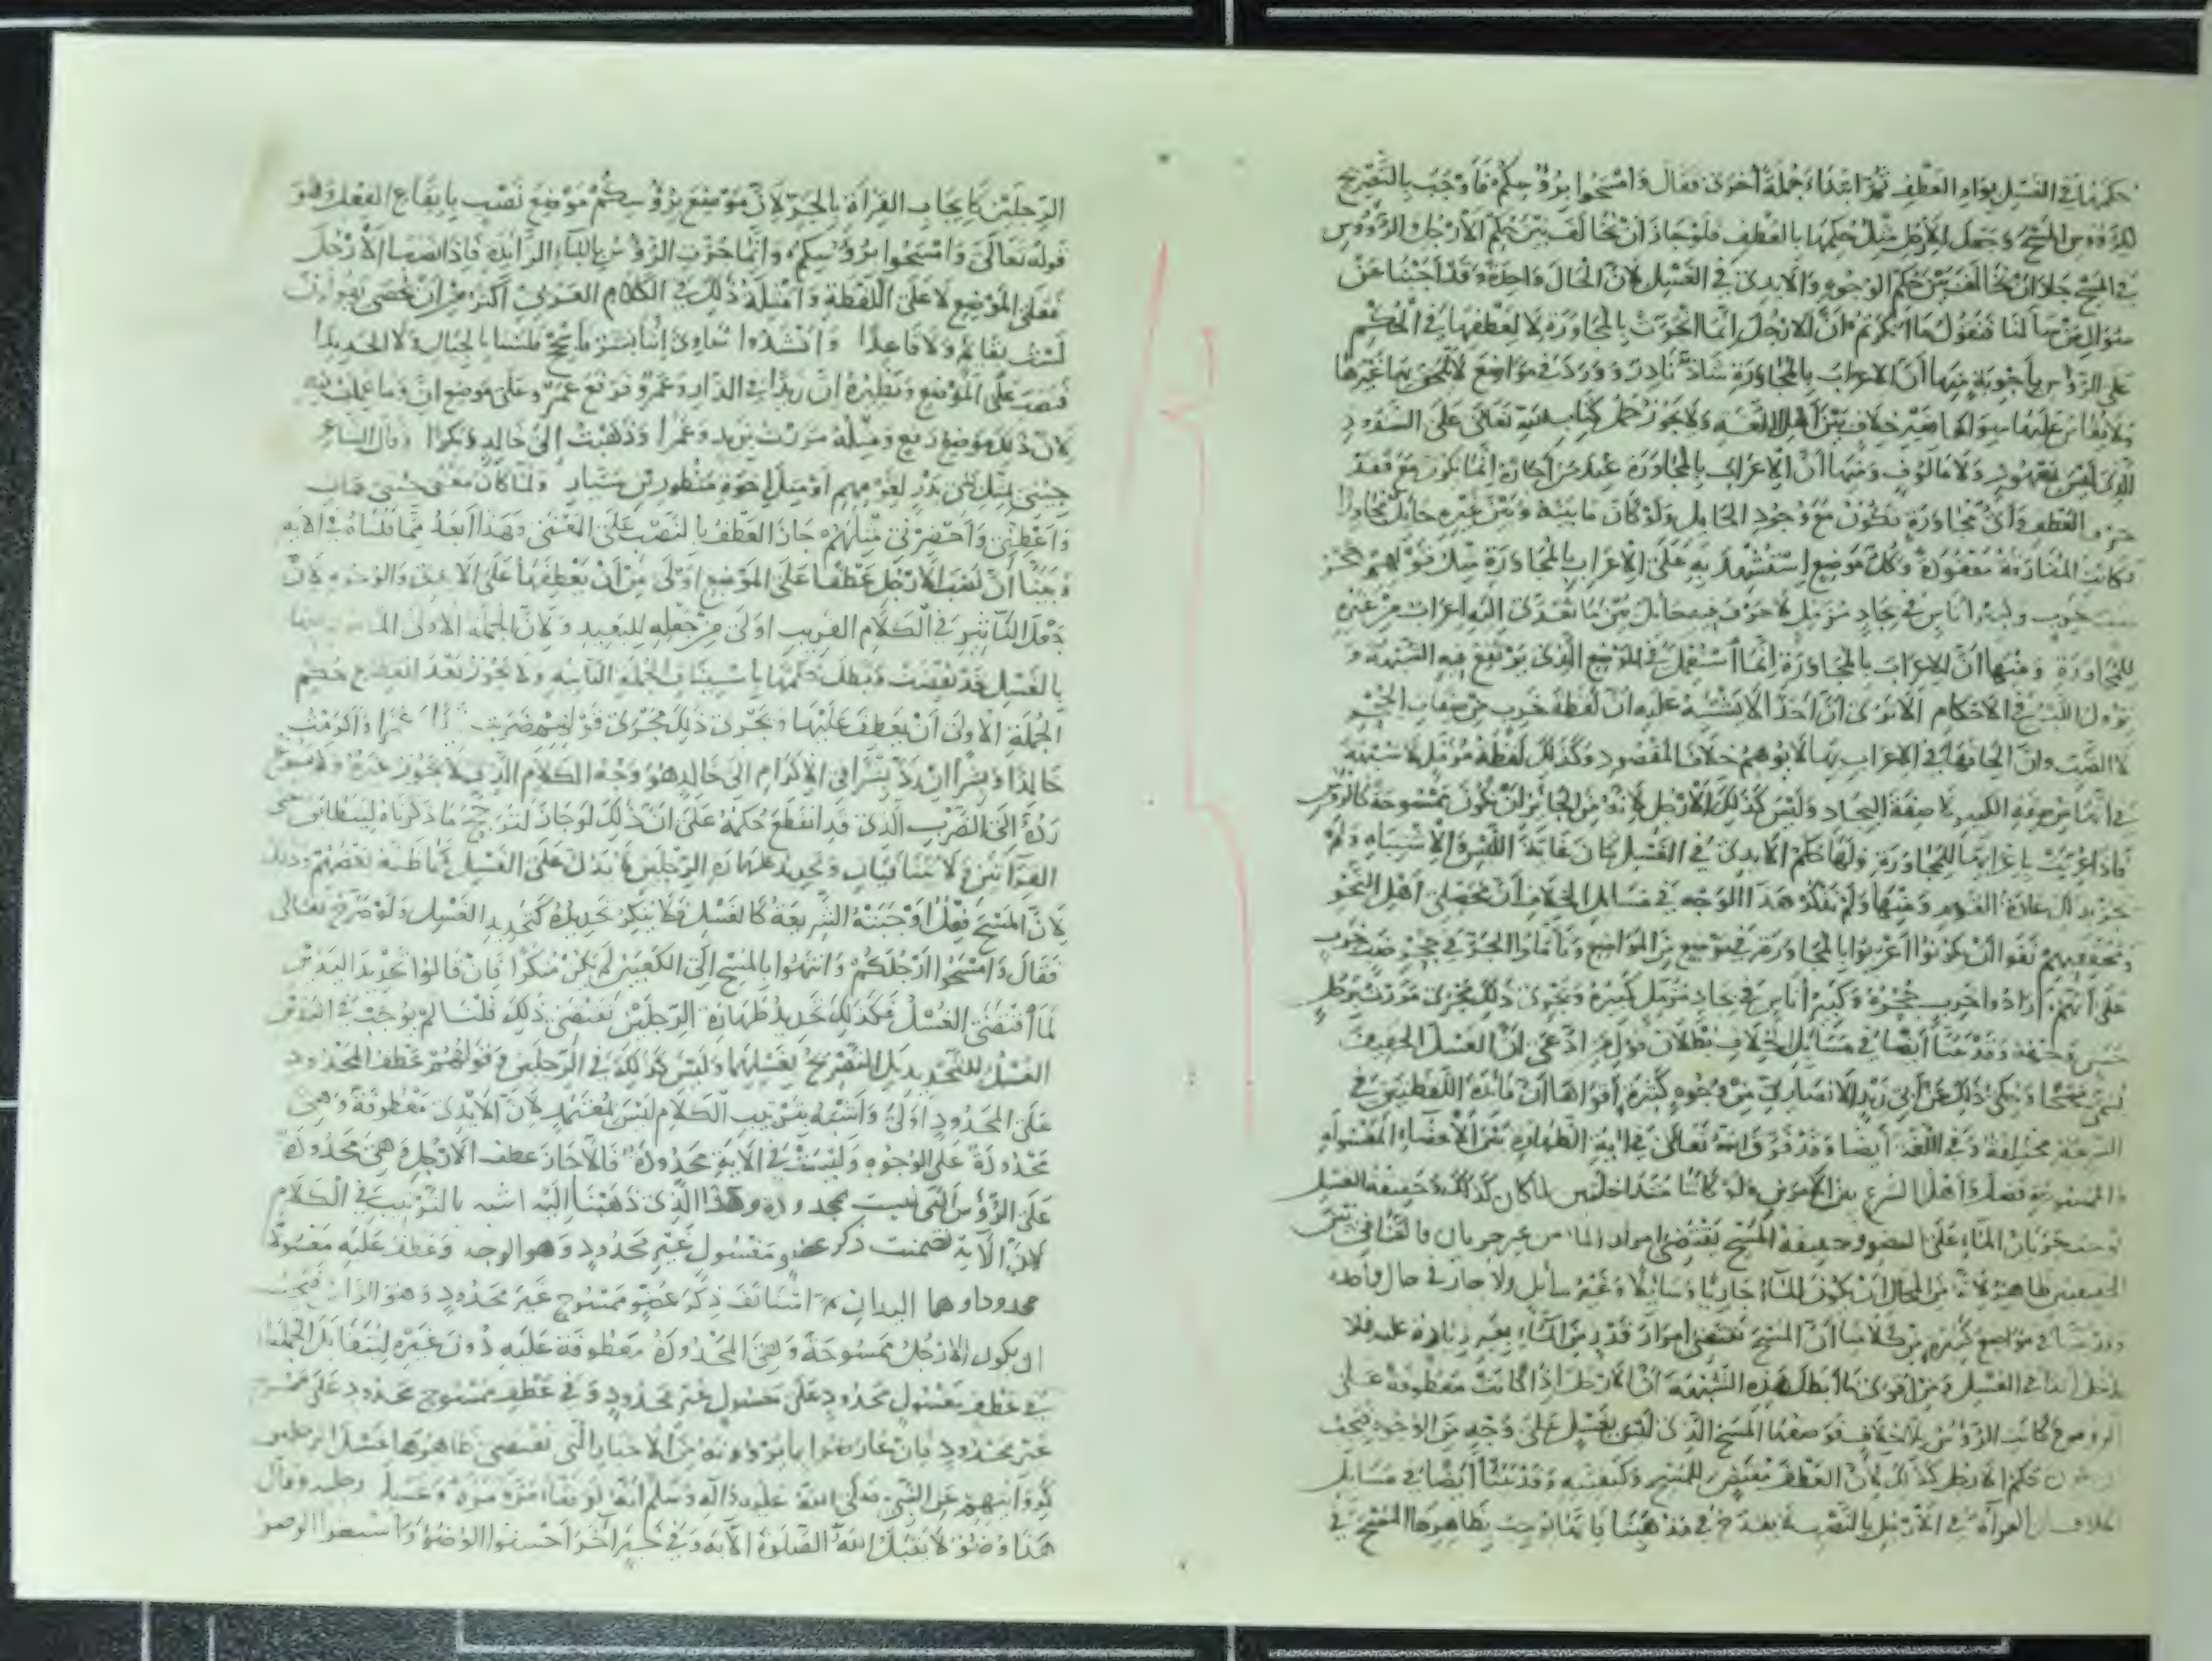 حكمها في الغسل بواو العطف ثم ابتداء جملة أخرى فقال وامسحوا برؤسكم فاوجب بالتصريح
للرؤوس المسح وجعل للأرجل مثل حكمها بالعطف فلو جاز ان يخالف بين حكم الأرجل والرؤوس
في المسح جاز ان يخالف بين حكم الوجوه والايدي في الغسل لان الحال واحدة وقد أجبنا عن
سؤال من سألنا فنقول ما انكرتم ان الارجل انما انجرت بالمجاورة لا لعطفها في الحكم
على الرؤس بأجوبة منها ان الاعراب بالمجاورة شاذ نادر ورد في مواضع لا يلحق بها غيرها
ولا يقاس عليها سواها بغير خلاف بين أهل اللغة ولا يجوز حمل كتاب الله تعالى على الشذوذ
الذي ليس بمعهود ولا مألوف ومنها أن الاعراب بالمجاورة عند من أجازه انما يكون مع فقد
حرف العطف وأي مجاورة تكون مع وجود الحايل ولو كان ما بينه وبين غيره حائل مجاورا
لكانت المفارقة مفقودة وكل موضع استشهد به على الاعراب بالمجاورة مثل قولهم جحر
ضب خرب وكبير أناس في بجاد مزمل لا حرف فيه حائل بين ما تعدى اليه اعراب من غيره
للمجاورة ومنها أن الاعراب بالمجاورة انما استعمل في الموضع الذي يرتفع فيه الشبهة و
يزول اللبس في الاحكام الا ترى ان احدا لا يشتبه عليه ان لفظة خرب من صفات الجحر
لا الضب وان الحاقها في الاعراب بها لا يوهم خلاف المقصود وكذلك لفظة مزمل لا شبهة
في انها من صفة الكبير لا صفة البجاد وليس كذلك الأرجل لانه من الجائز أن تكون ممسوحة كالرؤس
فاذا اعربت باعرابها للمجاورة ولها حكم الايدي في الغسل كان غاية اللبس والاشتباه ولم
تجر بذلك عادة القوم ومنها ولم نذكر هذا الوجه في مسائل الخلاف أن محصلي أهل النحو
ومحققيهم نفوا أن يكونوا أعربوا بالمجاورة في موضع من المواضع وتأولوا الجر في جحر ضب خرب
على أنهم أرادوا خرب جحره وكبير أناس في بجاد مزمل كبيره ويجري ذلك مجرى مررت برجل
حسن وجهه وقد بينا أيضا في مسائل الخلاف بطلان قول من ادعى ان الغسل الخفيف
يسمى مسحا وحكى ذلك عن أبي زيد الانصاري من وجوه كثيرة أقواها أن فائدة اللفظتين في
الشريعة مختلفة وفي اللغة أيضا وقد فرق الله تعالى في آية الطهارة بين الأعضاء المغسولة
والممسوحة وفصل أهل الشرع بين الأمرين ولو كانتا متداخلتين لما كان كذلك وحقيقة الغسل
توجب جريان الماء على العضو وحقيقة المسح يقتضي امرار الماء من غير جريان فالتنافي بين
الحقيقتين ظاهر لانه من المحال أن يكون الماء جاريا وسائلا وغير سائل ولا جار في حال واحدة
وقد بينا في مواضع كثيرة من كلامنا أن المسح يقتضي امرار قدر من الماء بغير زيادة عليه فلا
يدخل ابدا في الغسل ومن أقوى ما أبطل هذه الشبهة ان الأرجل إذا كانت معطوفة على
الرؤوس وكانت الرؤس بلا خلاف فرضها المسح الذي ليس بغسل على وجه من الوجوه فيجب
أن يكون حكم الارجل كذلك لأن العطف مقتض للمسح وكيفيته وقد بينا أيضا في مسايل
الخلاف ان القرآة في الأرجل بالنصب لا يقدح في مذهبنا وانها توجب بظاهرها المسح في
الرجلين كإيجاب القرأة بالجر لان موضع برؤسكم موضع نصب بإيقاع الفعل وهو
قوله تعالى وامسحوا برؤسكم وانما جرت الرؤس بالباء الزايدة فاذا نصبنا الأرجل
فعلى الموضع لا على اللفظة وأمثلة ذلك في الكلام العربي أكثر من ان تحصى يقولون
لست بقائم ولا قاعدا وانشدوا معاوي إننا بشر فاسجح فلسنا بالجبال ولا الحديدا
فنصب على الموضع ونظيره ان زيدا في الدار وعمرو فرفع عمرو على موضع ان وما عملت فيه
لان ذلك موضع رفع ومثله مررت بزيد وعمرا وذهبت إلى خالد وبكرا وقال الشاعر
جئني بمثل بني بدر لقومهم أو مثل اخوة منظور بن سيار ولما كان معنى جئني هات
وأعطني وأحضرني مثلهم جاز العطف بالنصب على المعنى وهذا أبعد مما قلناه في الآية
وبينا أن نصب الأرجل عطفا على الموضع أولى من أن يعطفها على الايدي والوجوه لان
جعل التأثير في الكلام القريب أولى من جعله للبعيد ولان الجملة الاولى المأمور فيها
بالغسل قد نقضت وبطل حكمها باستيناف الجملة الثانية ولا يجوز بعد انقطاع حكم
الجملة الأولى أن يعطف عليها ويجري ذلك مجرى قولهم ضربت زيدا وعمرا وأكرمت
خالدا وبشرا ان رد بشرا في الإكرام الى خالد هو وجه الكلام الذي لا يجوز غيره ولا يسوغ
رده إلى الضرب الذي قد انقطع حكمه على ان ذلك لو جاز لترجح ما ذكرناه ليتطابق معنى
القرآتين ولا يتنافيان وتحديد طهارة الرجلين لا يدل على الغسل كما ظنه بعضهم وذلك
لان المسح فعل اوجبته الشريعة كالغسل فلا ينكر تحديده كتحديد الغسل ولو صرح تعالى
فقال وامسحوا أرجلكم وانتهوا بالمسح إلى الكعبين لم يكن منكرا فان قالوا تحديد اليدين
لما اقتضى الغسل فكذلك تحديد طهارة الرجلين يقتضي ذلك قلنا لم يوجب في اليدين
الغسل للتحديد بل للتصريح بغسلهما وليس كذلك في الرجلين وقولهم عطف المحدود
على المحدود أولى وأشبه بترتيب الكلام ليس بمعتمد لان الأيدي معطوفة وهي
محدودة على الوجوه وليست في الآية محدودة فالا جاز عطف الارجل وهي محدودة
على الرؤس التي ليست بمحدودة وهذا الذي ذهبنا اليه اشبه بالترتيب في الكلام
لان الآية تضمنت ذكر عضو مغسول غير محدود وهو الوجه وعطف عليه مغسولا
محدودا وهما اليدان ثم استأنف ذكر عضو ممسوح غير محدود وهو الراس فيجب
ان يكون الأرجل ممسوحة وهي المحدودة معطوفة عليه دون غيره ليتقابل الجملتان
في عطف مغسول محدود على مغسول غير محدود وفي عطف ممسوح محدود على ممسوح
غير محدود فان عارضوا بما يروونه من الاخبار التي تقتضي ظاهرها غسل الرجلين
كروايتهم عن النبي صلى الله عليه وآله وسلم أنه توضأ مرة مرة وغسل رجليه وقال
هذا وضوء لا يقبل الله الصلوة الا به وفي خبر آخر أحسنوا الوضوء وأسبغوا الوضوء